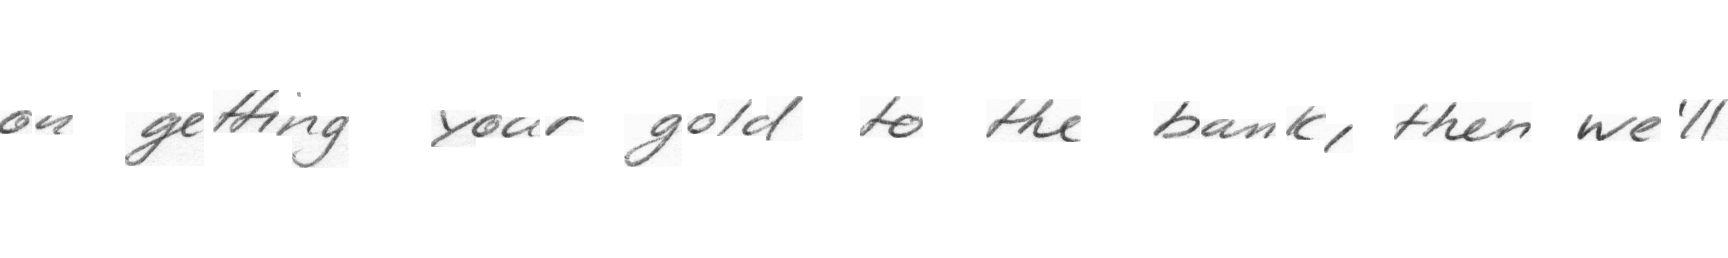 on getting your gold to the bank, then we'll